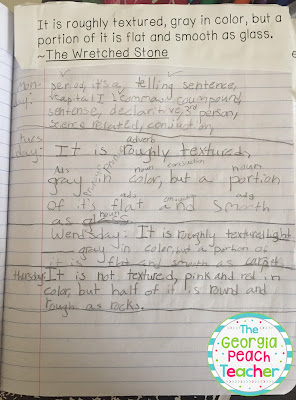 It is roughly textured, gray in color, but a
portion of it is flat and smooth as glass.
~The Wretched Stone
Mon- period, it's a telling sentence,
day: capital I, 2 commas, compound
sentence, declaritive, 3rd person,
science related,
tues adverb
day: It is roughly textured,
noun conjunction noun
gray in color, but a portion
adj conjunction adj
of it's flat and smooth
noun
as glass.
Wensday: It is roughly textured light
gray in color, but a portion of
it is flat and smooth as carpet.
Thursday: It is not textured, pink and red in
color, but half of it is round and
rough as rocks.
The
Georgia
Peach
Teacher